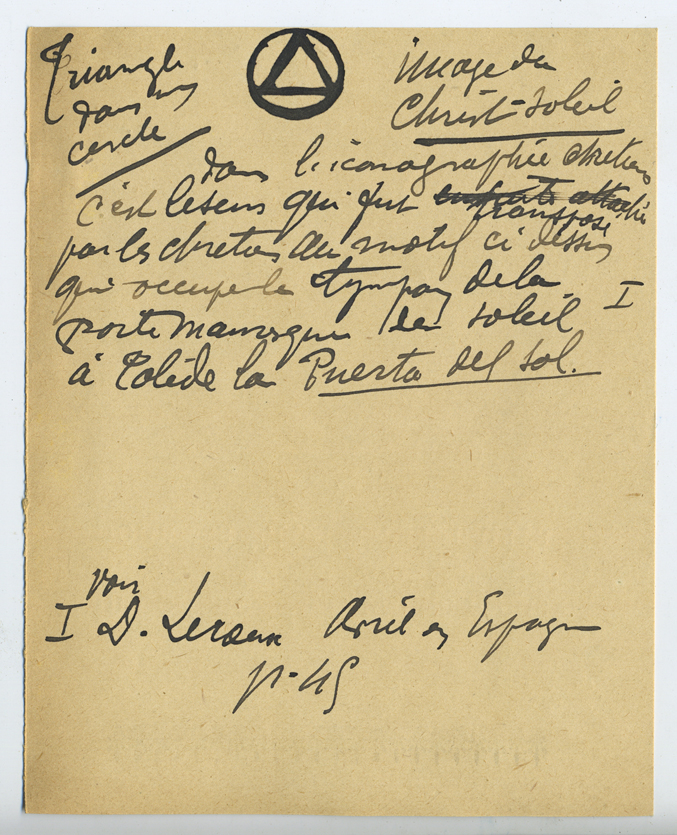 Triangle
dans un
cercle
image du
Christ-Soleil
dans l'iconographie chretien
c'est le sens qui fut attaché
transposé
par les chretiens au motif ci dessus
qui occupe le tympan de la
porte Mauresque du soleil I
à Tolède la Puerta del Sol.
voir
I D. Leroux Avril en Espagne
p. 45